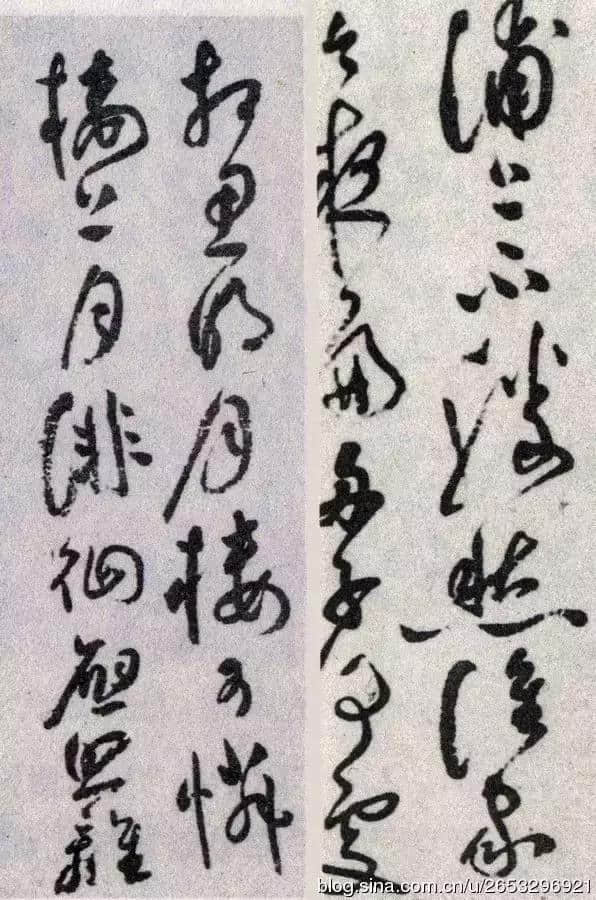 浦上不勝愁誰家
今夜扁舟子何處
相思明月樓可憐
樓上月徘徊應照離
blog.sina.com.cn/u/2653296921